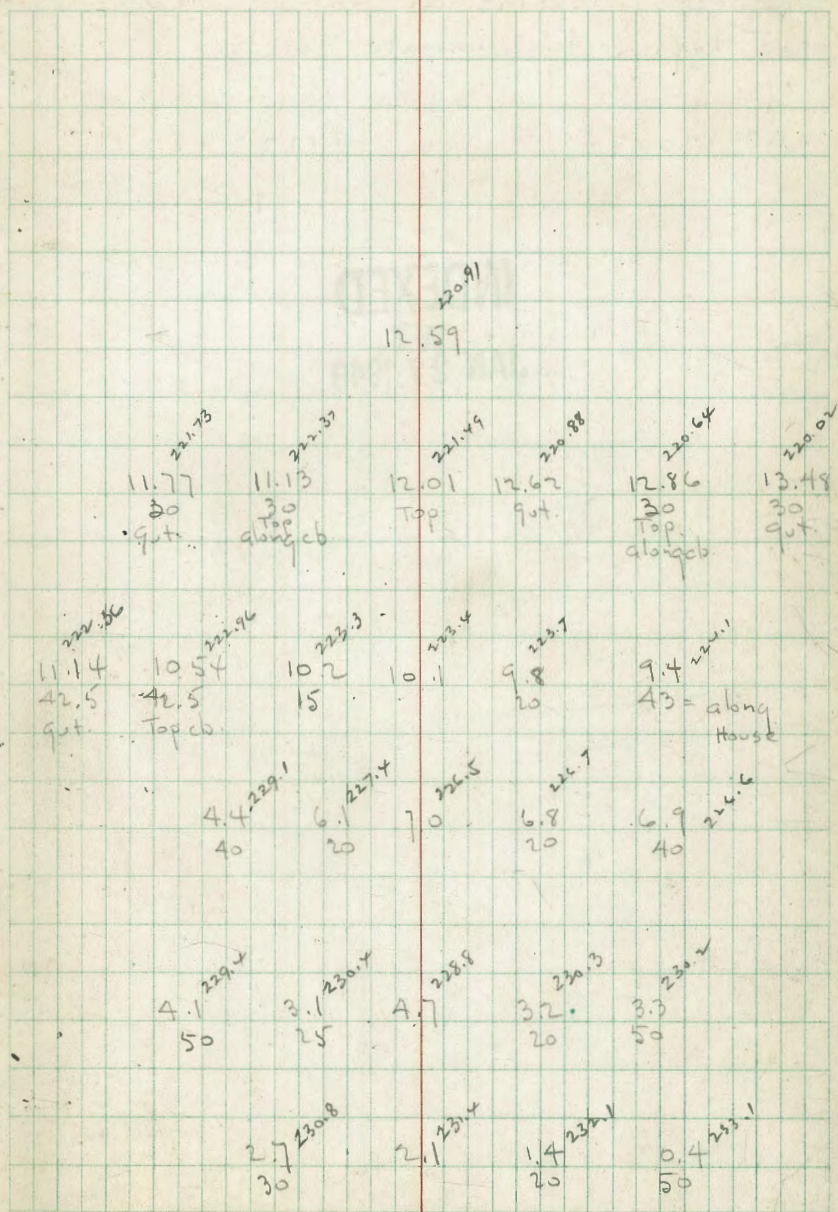 220.91
12.59
221.73 222.37 221.49 220.88 220.64 220.02
11.77 11.13 12.01 12.62 12.86 13.48
30 30 Top gut. 30 30
gut. Top Top gut.
alongcb alongcb
222.36 222.96 223.3 223.4 223.7 224.1
11.14 10.54 10.2 10.1 9.8 9.4
42.5 42.5 15 20 43 = along
gut. Top cb. House
229.1 227.4 226.5 226.7 226.6
4.4 6.1 7.0 6.8 6.9
40 20 20 40
229.4 230.4 228.8 230.3 230.2
4.1 3.1 4.7 3.2 3.3
50 25 20 50
230.8 231.4 232.1 233.1
2.7 2.1 1.4 0.4
30 20 50